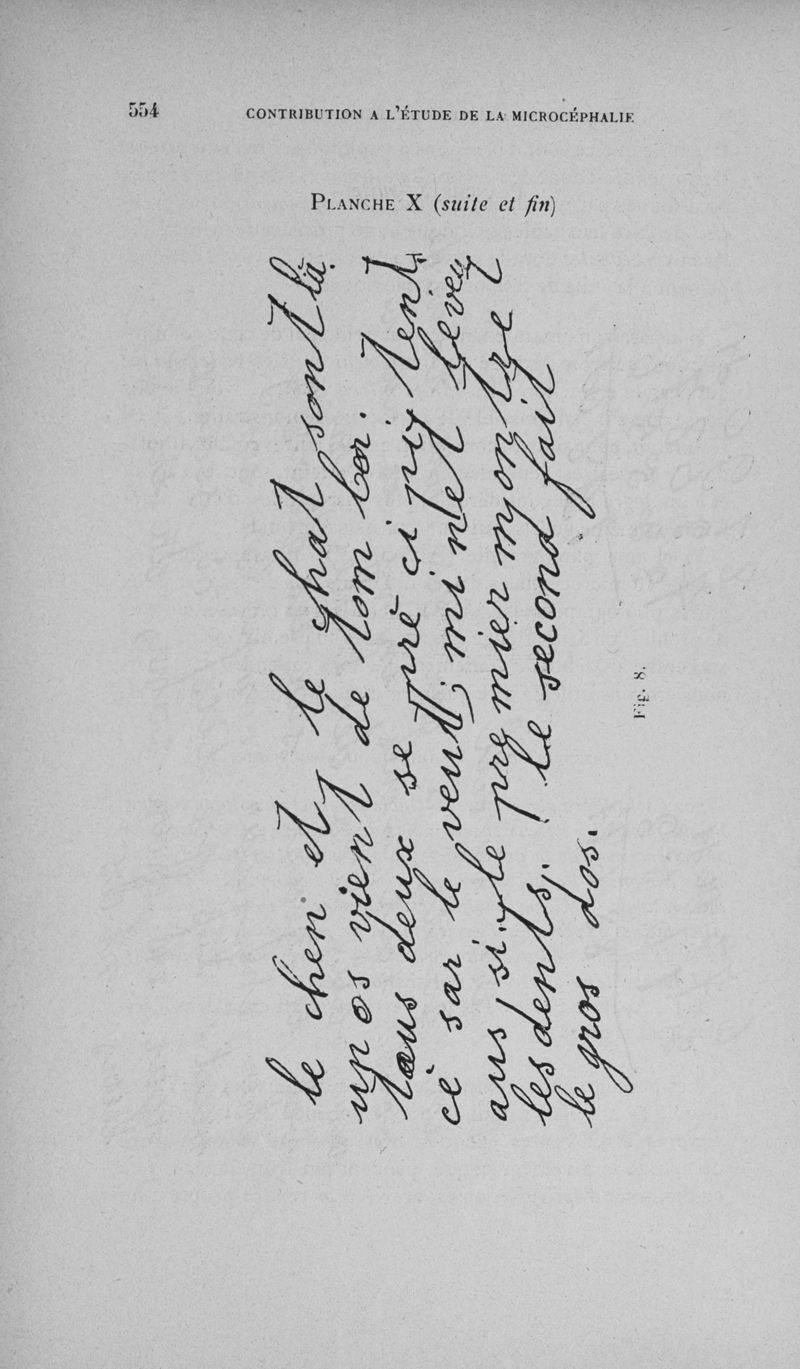 554
CONTRIBUTION A L'ÉTUDE DE LA MICROCÉPHALIE
PLANCHE X (suite et fin)
le chen et le chat sont là.
un os vient de tom ber.
tous deux se prè ci pi tent,
cè sar le veut; mi net le veut
aus si. le pre mier mon tre
les dents; le second fait
le gros dos.
Fig. 8.